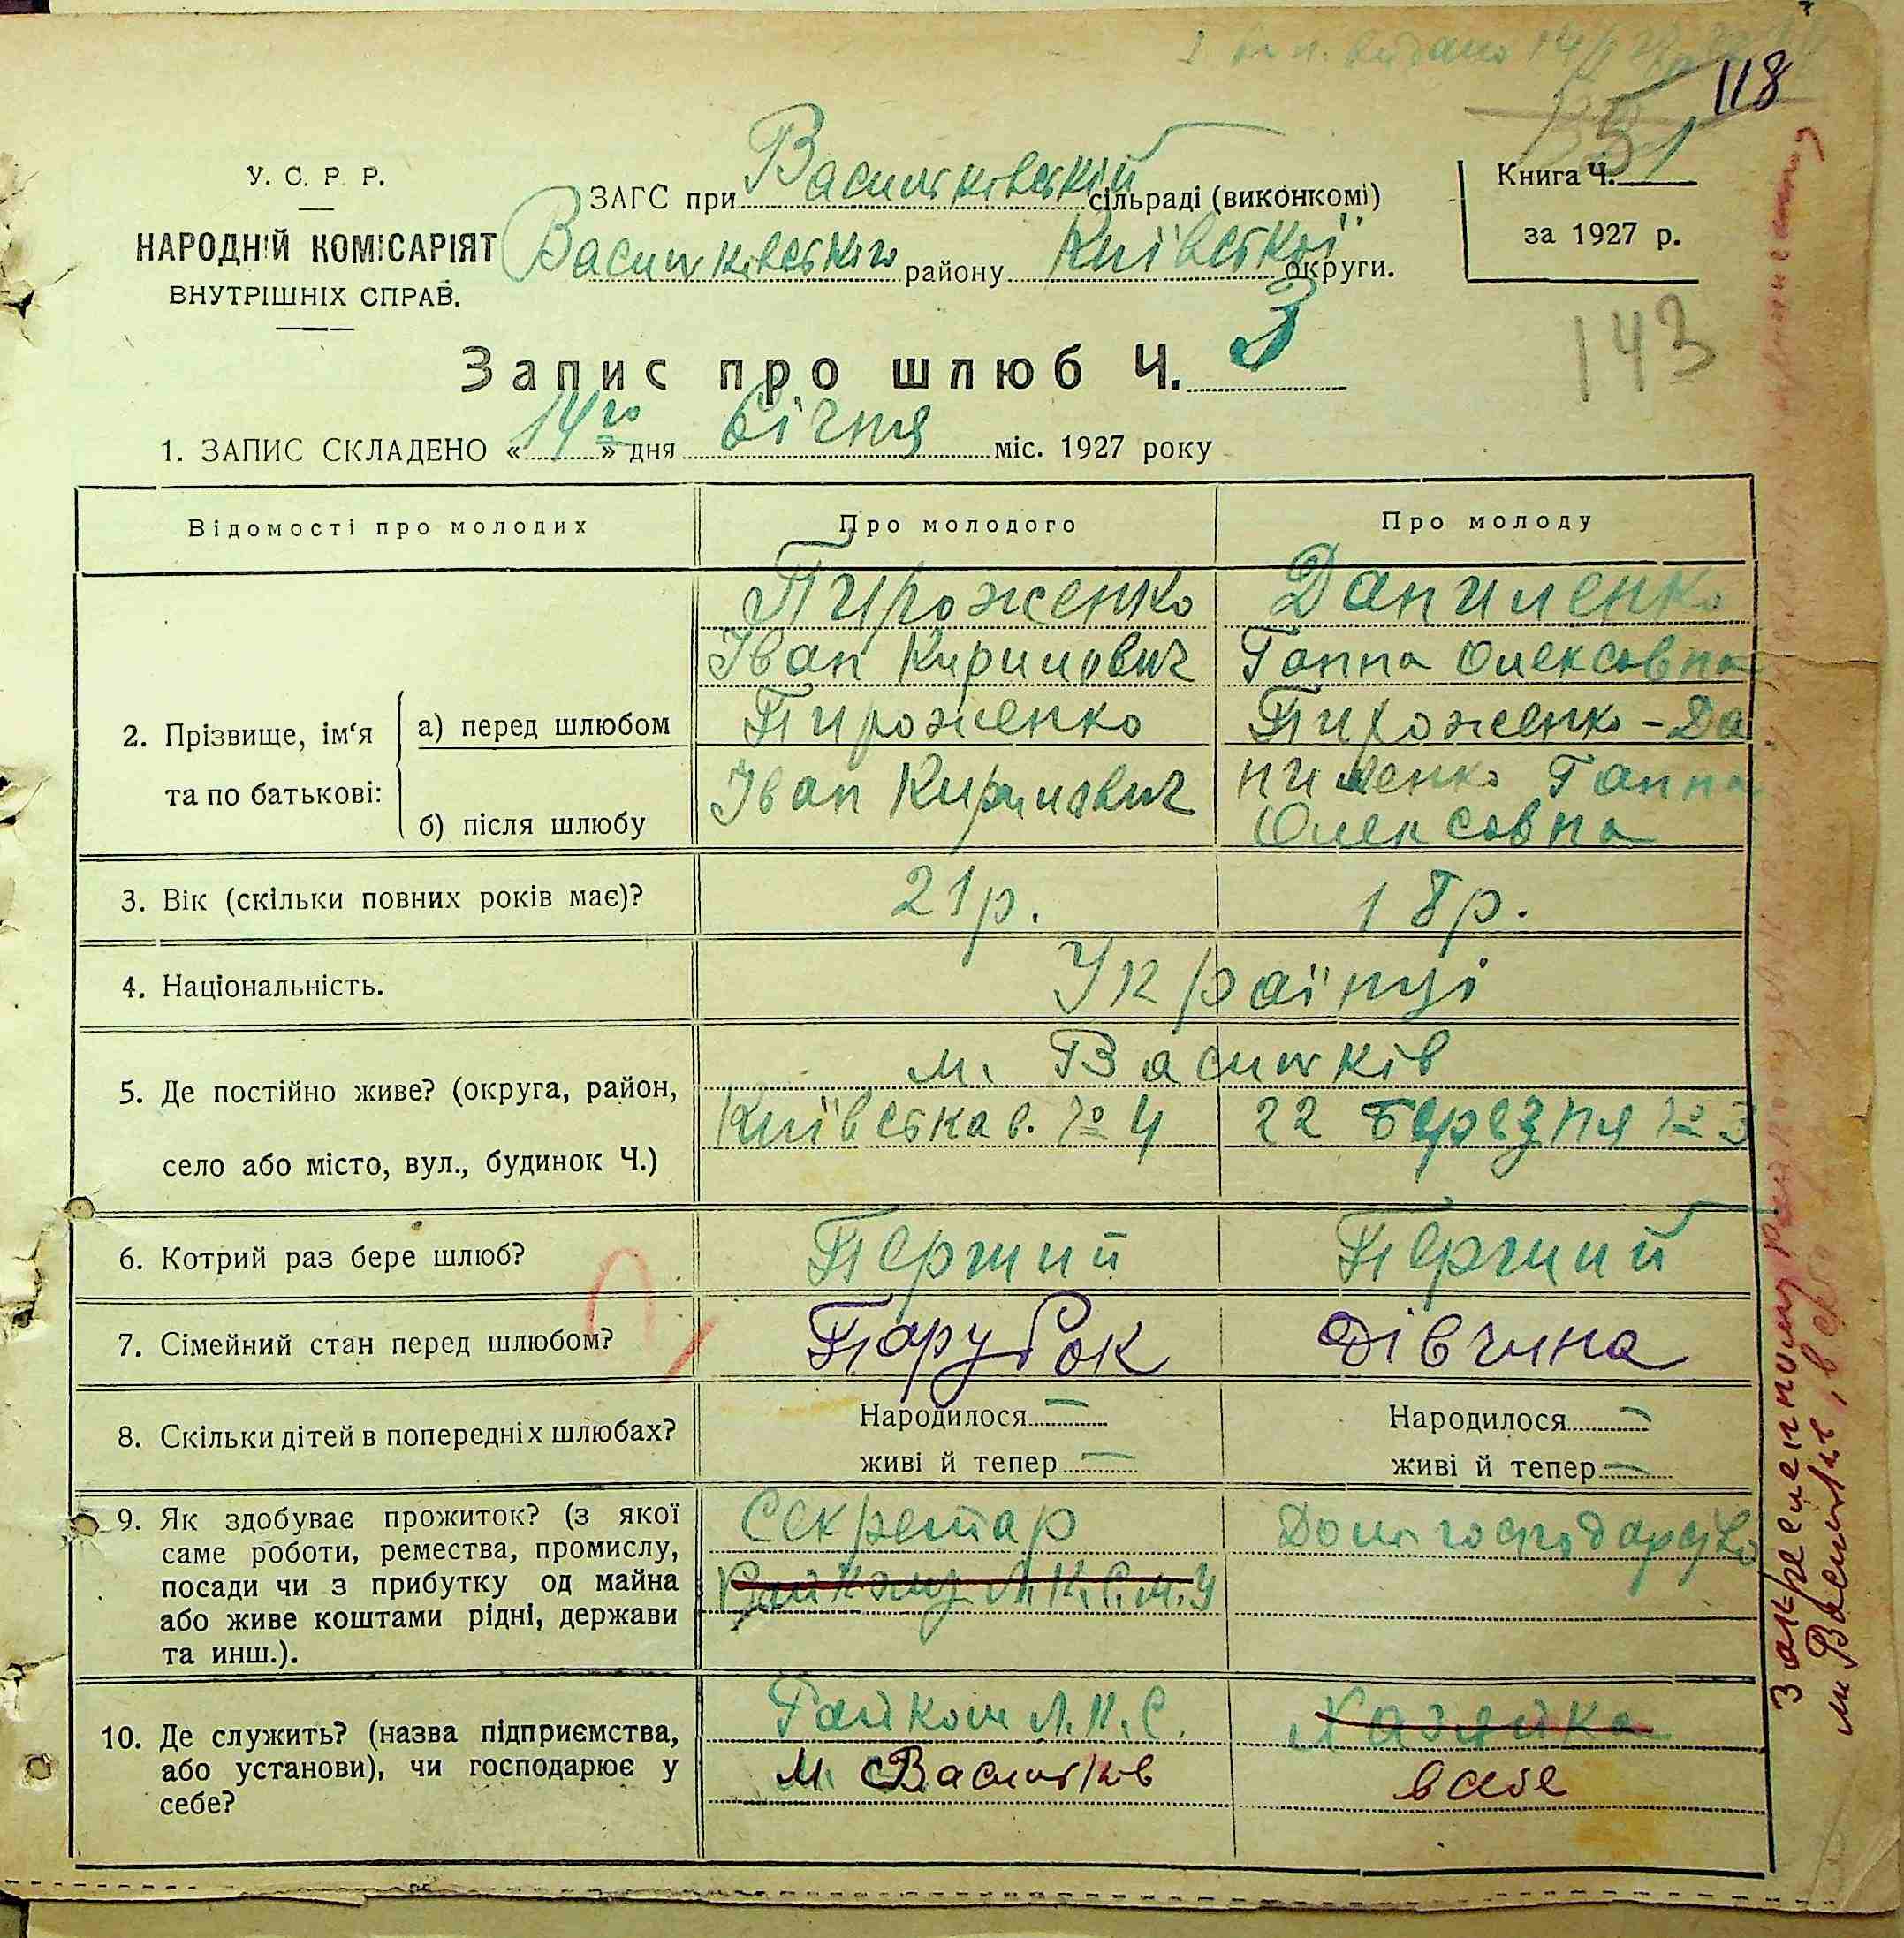 118
351
У. С. Р. Р.
НАРОДНІЙ КОМІСАРІЯТ
ВНУТРІШНІХ СПРАВ.
ЗАГС при Васильківській сільраді (виконкомі)
Васильківського району Київської округи.
Книга Ч.
за 1927 р.
143
Запис про шлюб Ч. 3
1. ЗАПИС СКЛАДЕНО «14го» дня Січня міс. 1927 року
Відомості про молодих Про молодого Про молоду
2. Прізвище, ім‘я та по батькові:
а) перед шлюбом
Пироженко
Іван Кирилович
Даниленко
Ганна Олексовна
б) після шлюбу
Пироженко
Іван Кирилович
Пироженко-Да
ниленко Ганна
Олексовна
3. Вік (скільки повних років має)? 21р. 18р.
4. Національність. Українці
5. Де постійно живе? (округа, район,
село або місто, вул., будинок Ч.)
м. Васильків
Київська в. № 4 22 Березня № 3
6. Котрий раз бере шлюб? Перший Перший
7. Сімейний стан перед шлюбом? Парубок Дівчина
8. Скільки дітей в попередніх шлюбах?
Народилося — Народилося —
живі й тепер — живі й тепер —
9. Як здобуває прожиток? (з якої
саме роботи, ремества, промислу,
посади чи з прибутку од майна
або живе коштами рідні, держави
та инш.).
Секретар
Райкому Л.К.С.М.У
Дом господарство
10. Де служить? (назва підприємства,
або установи), чи господарює у
себе?
Райком Л.К.С.
м. Васильків
Хазяйка
в себе
Закресленному
м Васильків, в себе